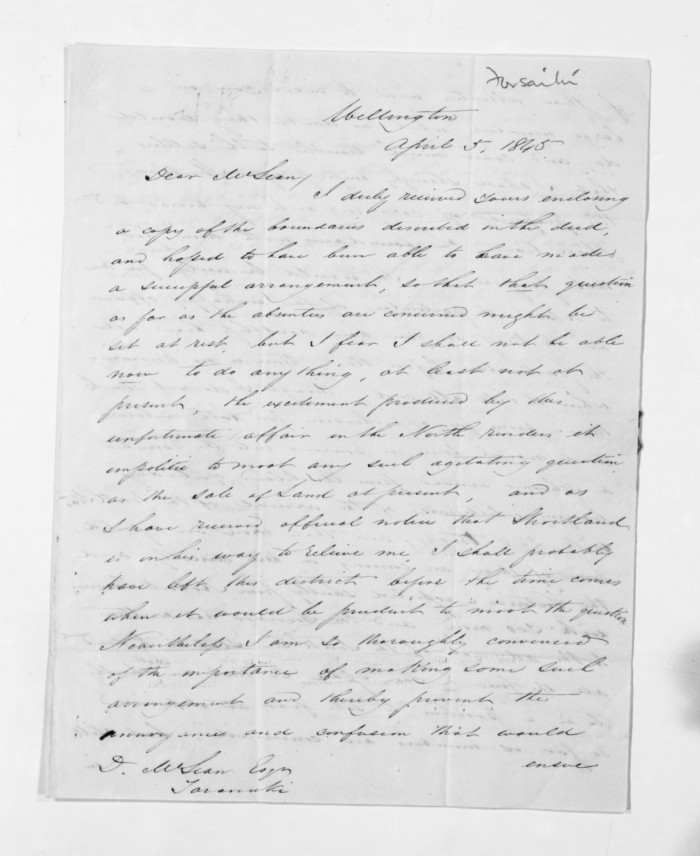 Forsaith
Wellington
April 5, 1845
Dear McLean,
I duly received yours enclosing
a copy of the boundaries described in the deed,
and hoped to have been able to have made
a successful arrangement, so that that question
as far as the absentees are concerned might be
set at rest, but I fear I shall not be able
now to do anything, at least not at
present, the excitement produced by this
unfortunate affair in the North renders it
impolitic to moot any such agitating question
as the sale of Land at present, and as
I have received official notice that Shortland
is on his way to relieve me I shall probably
have left this district before the time comes
when it would be prudent to moot the question
Nevertheless I am so thoroughly convinced
of the importance of making some such
arrangement and thereby prevent the
annoyances and confusion that would
ensue
D. McLean Esqr
Taranaki